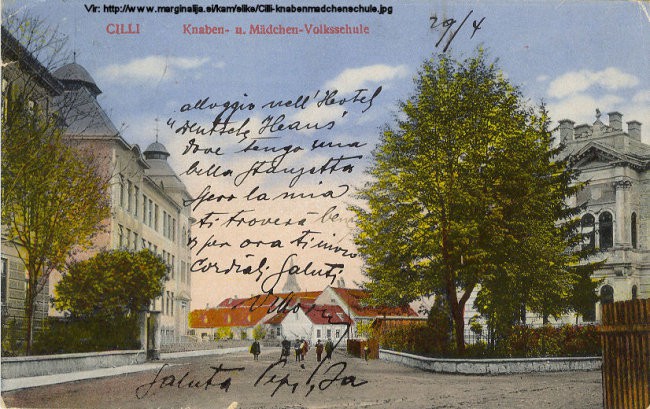 Vir: http://www.marginalija.si/kam/slike/Cilli-knabenmadchenschule.jpg
CILLI Knaben- u. Mädchen-Volksschule
29/4
alloggio nell' Hotel
"Deutsche Heaus"
dove tengo una
bella stanzetta
Spero la mia
ti troverà bene
per ora ti invio
Cordiali Saluti
Saluta